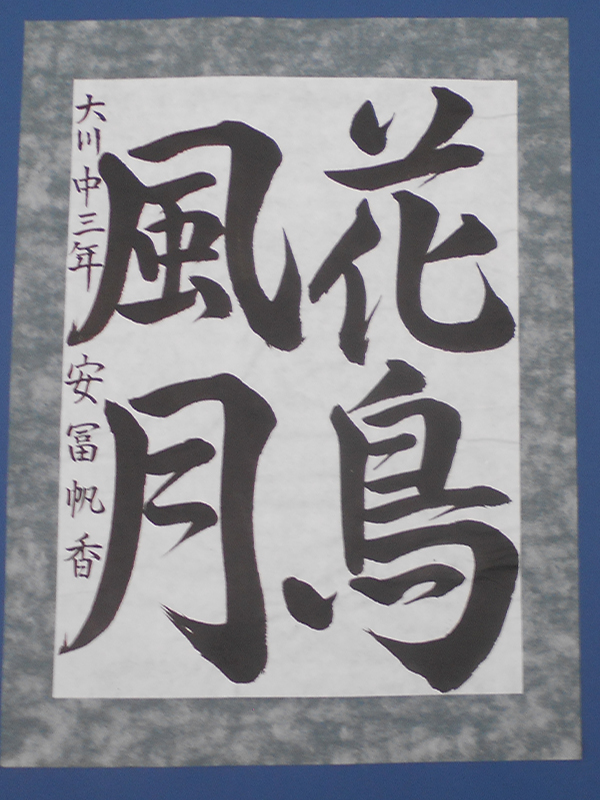 花鳥
風月
大川中三年 安冨帆香